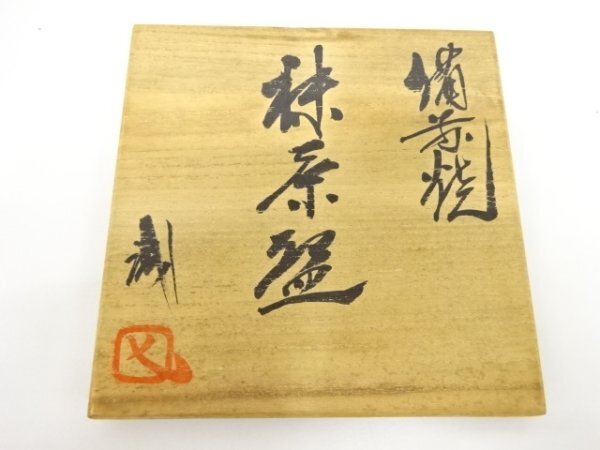 備前焼
抹茶盌